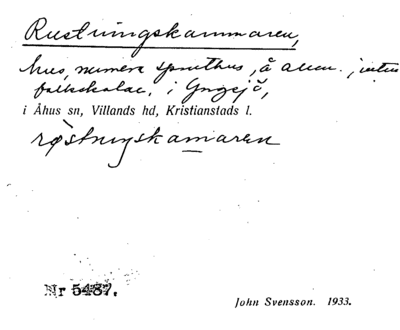 Rustningskammaren,
hus, numera spruthus, å allm.
folkskolan, i Yngsjö,
i Åhus sn, Villands hd, Kristianstads l.
røstnıŋskamaren
Nr 5487.
John Svensson. 1933.